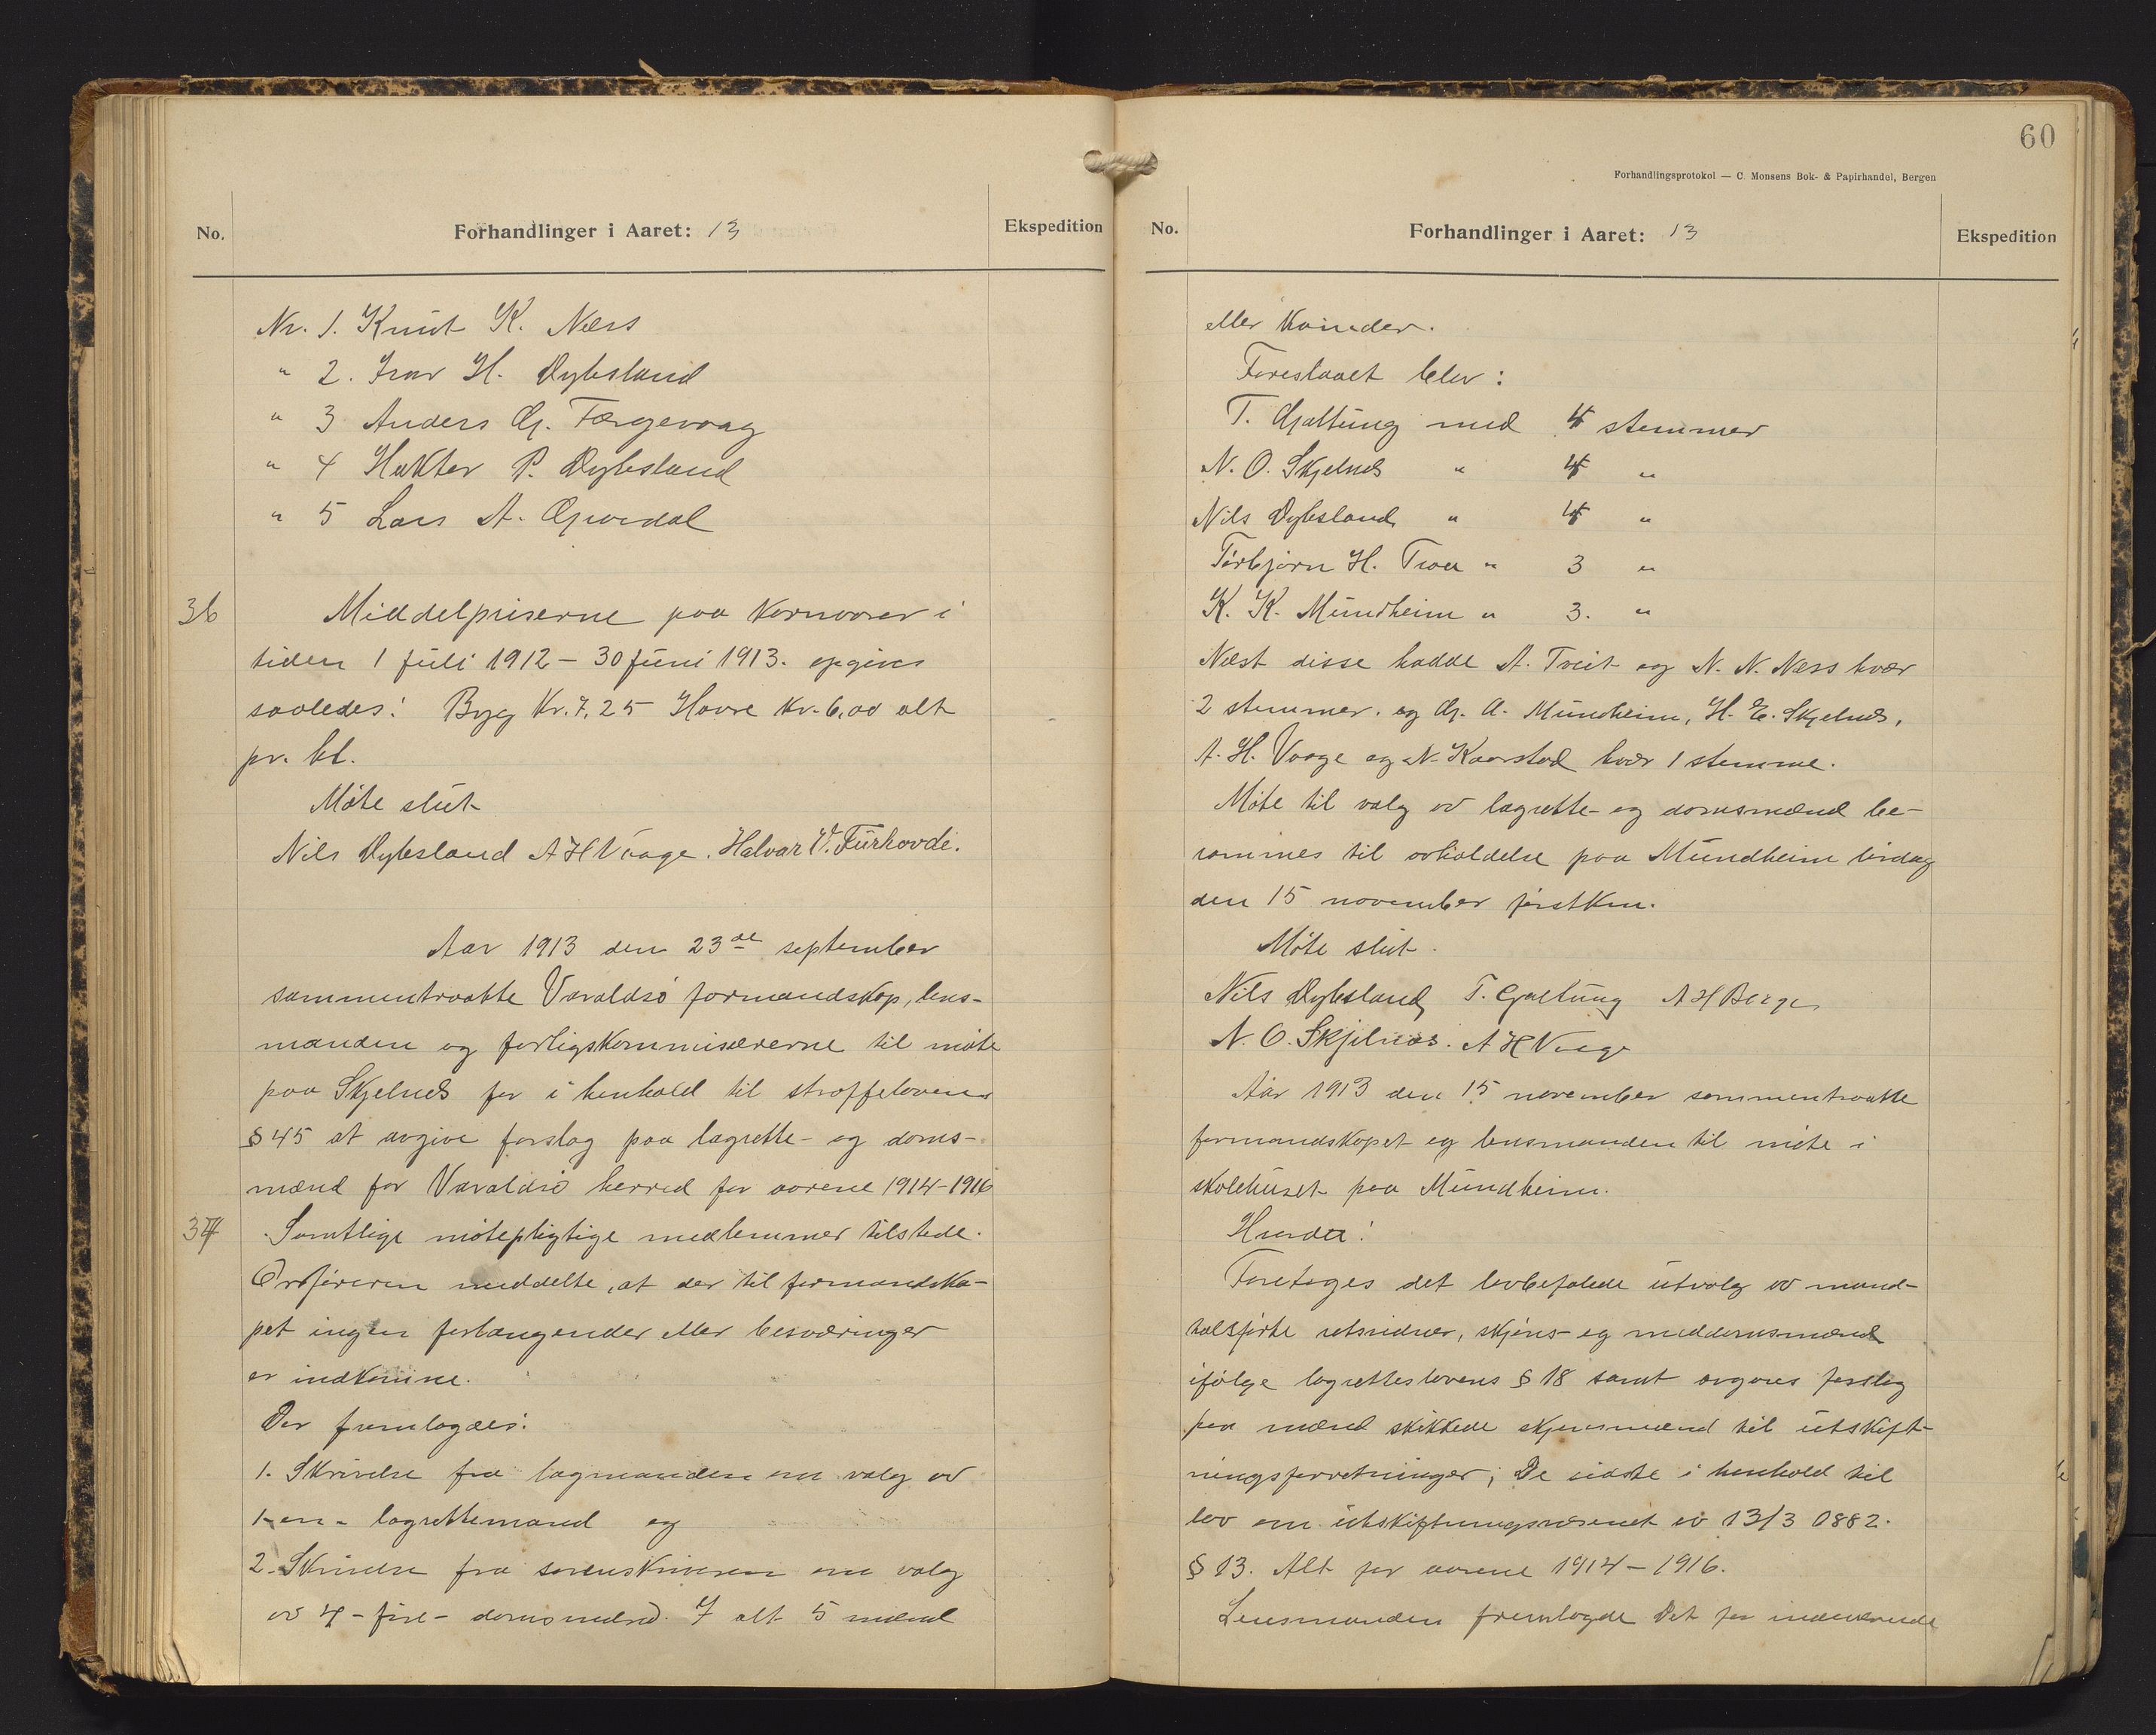 No.
Forhandlinger i Aaret: 13
Ekspedition
Nr. 1. Knut K. Næss
" 2. Ivar H. Dybsland
" 3 Anders G. Færgevaag
" 4 Halktor P. Dybsland
" 5 Lars A. Gjerdal
36
Middelpriserne paa kornvarer i
tiden 1 juli 1912 - 30 juni 1913. opgives
saaledes: Byg Kr. 7,25 Havre Kr. 6,00 alt
pr. hl.
Møte slut
Nils Dybsland A H Vaage. Halvar V. Furhovde.
Aar 1913 den 23de september
sammentraatte Varaldsø formandskap, lens-
manden og forligskommisærerne til møte
paa Skjelnes for i henhold til straffelovens
§ 45 at avgive forslag paa lagrette- og doms-
mænd for Varaldsø herred for aarene 1914-1916
37
Samtlige møtepligtige medlemmer tilstede.
Ordføreren meddelte, at der til formandska-
pet ingen forlangender eller besværinger
er indkomne.
Der fremlagdes:
1. Skrivelse fra lagmanden om valg av
1-en- lagrettemand og
2. Skrivelse fra sorenskriveren om valg
av 4-fire- domsmænd. I alt 5 mænd
60
Forhandlingsprotokol — C. Monsens Bok- & Papirhandel, Bergen
No.
Forhandlinger i Aaret: 13
Ekspedition
eller kvinder.
Foreslaaet blev:
T. Gjaltung med 4 stemmer
N. O. Skjelnes " 4 "
Nils Dybsland " 4 "
Torbjørn H. Træe " 3 "
K. K. Mundheim " 3. "
Næst disse hadde A. Tveit og N. N. Næss hver
2 stemmer. og G. A. Mundheim, H. E. Skjelnes,
A. H. Vaage og N. Kaarstad hver 1 stemme.
Møte til valg av lagrette- og domsmænd be-
rammes til avholdelse paa Mundheim lørdag
den 15 november førstkm.
Møte slut.
Nils Dybsland T. Gjaltung A H Berge
N. O. Skjelnes. A H Vaage
Aar 1913 den 15 november sammentraatte
formandskapet og lensmanden til møte i
skolehuset paa Mundheim.
Hvorda:
Foretoges det lovbefalede utvalg av mand-
talsførte retsvidner, skjøns- og meddomsmænd
ifølge lagretteslovens § 18 samt avgaves forslag
paa mænd skikkede skjønsmænd til utskift-
ningsforretninger; De sidste i henhold til
lov om utskiftningsvæsenet av 13/3 0882.
§ 13. Alt for aarene 1914 - 1916.
Lensmanden fremlagde det for indeværende